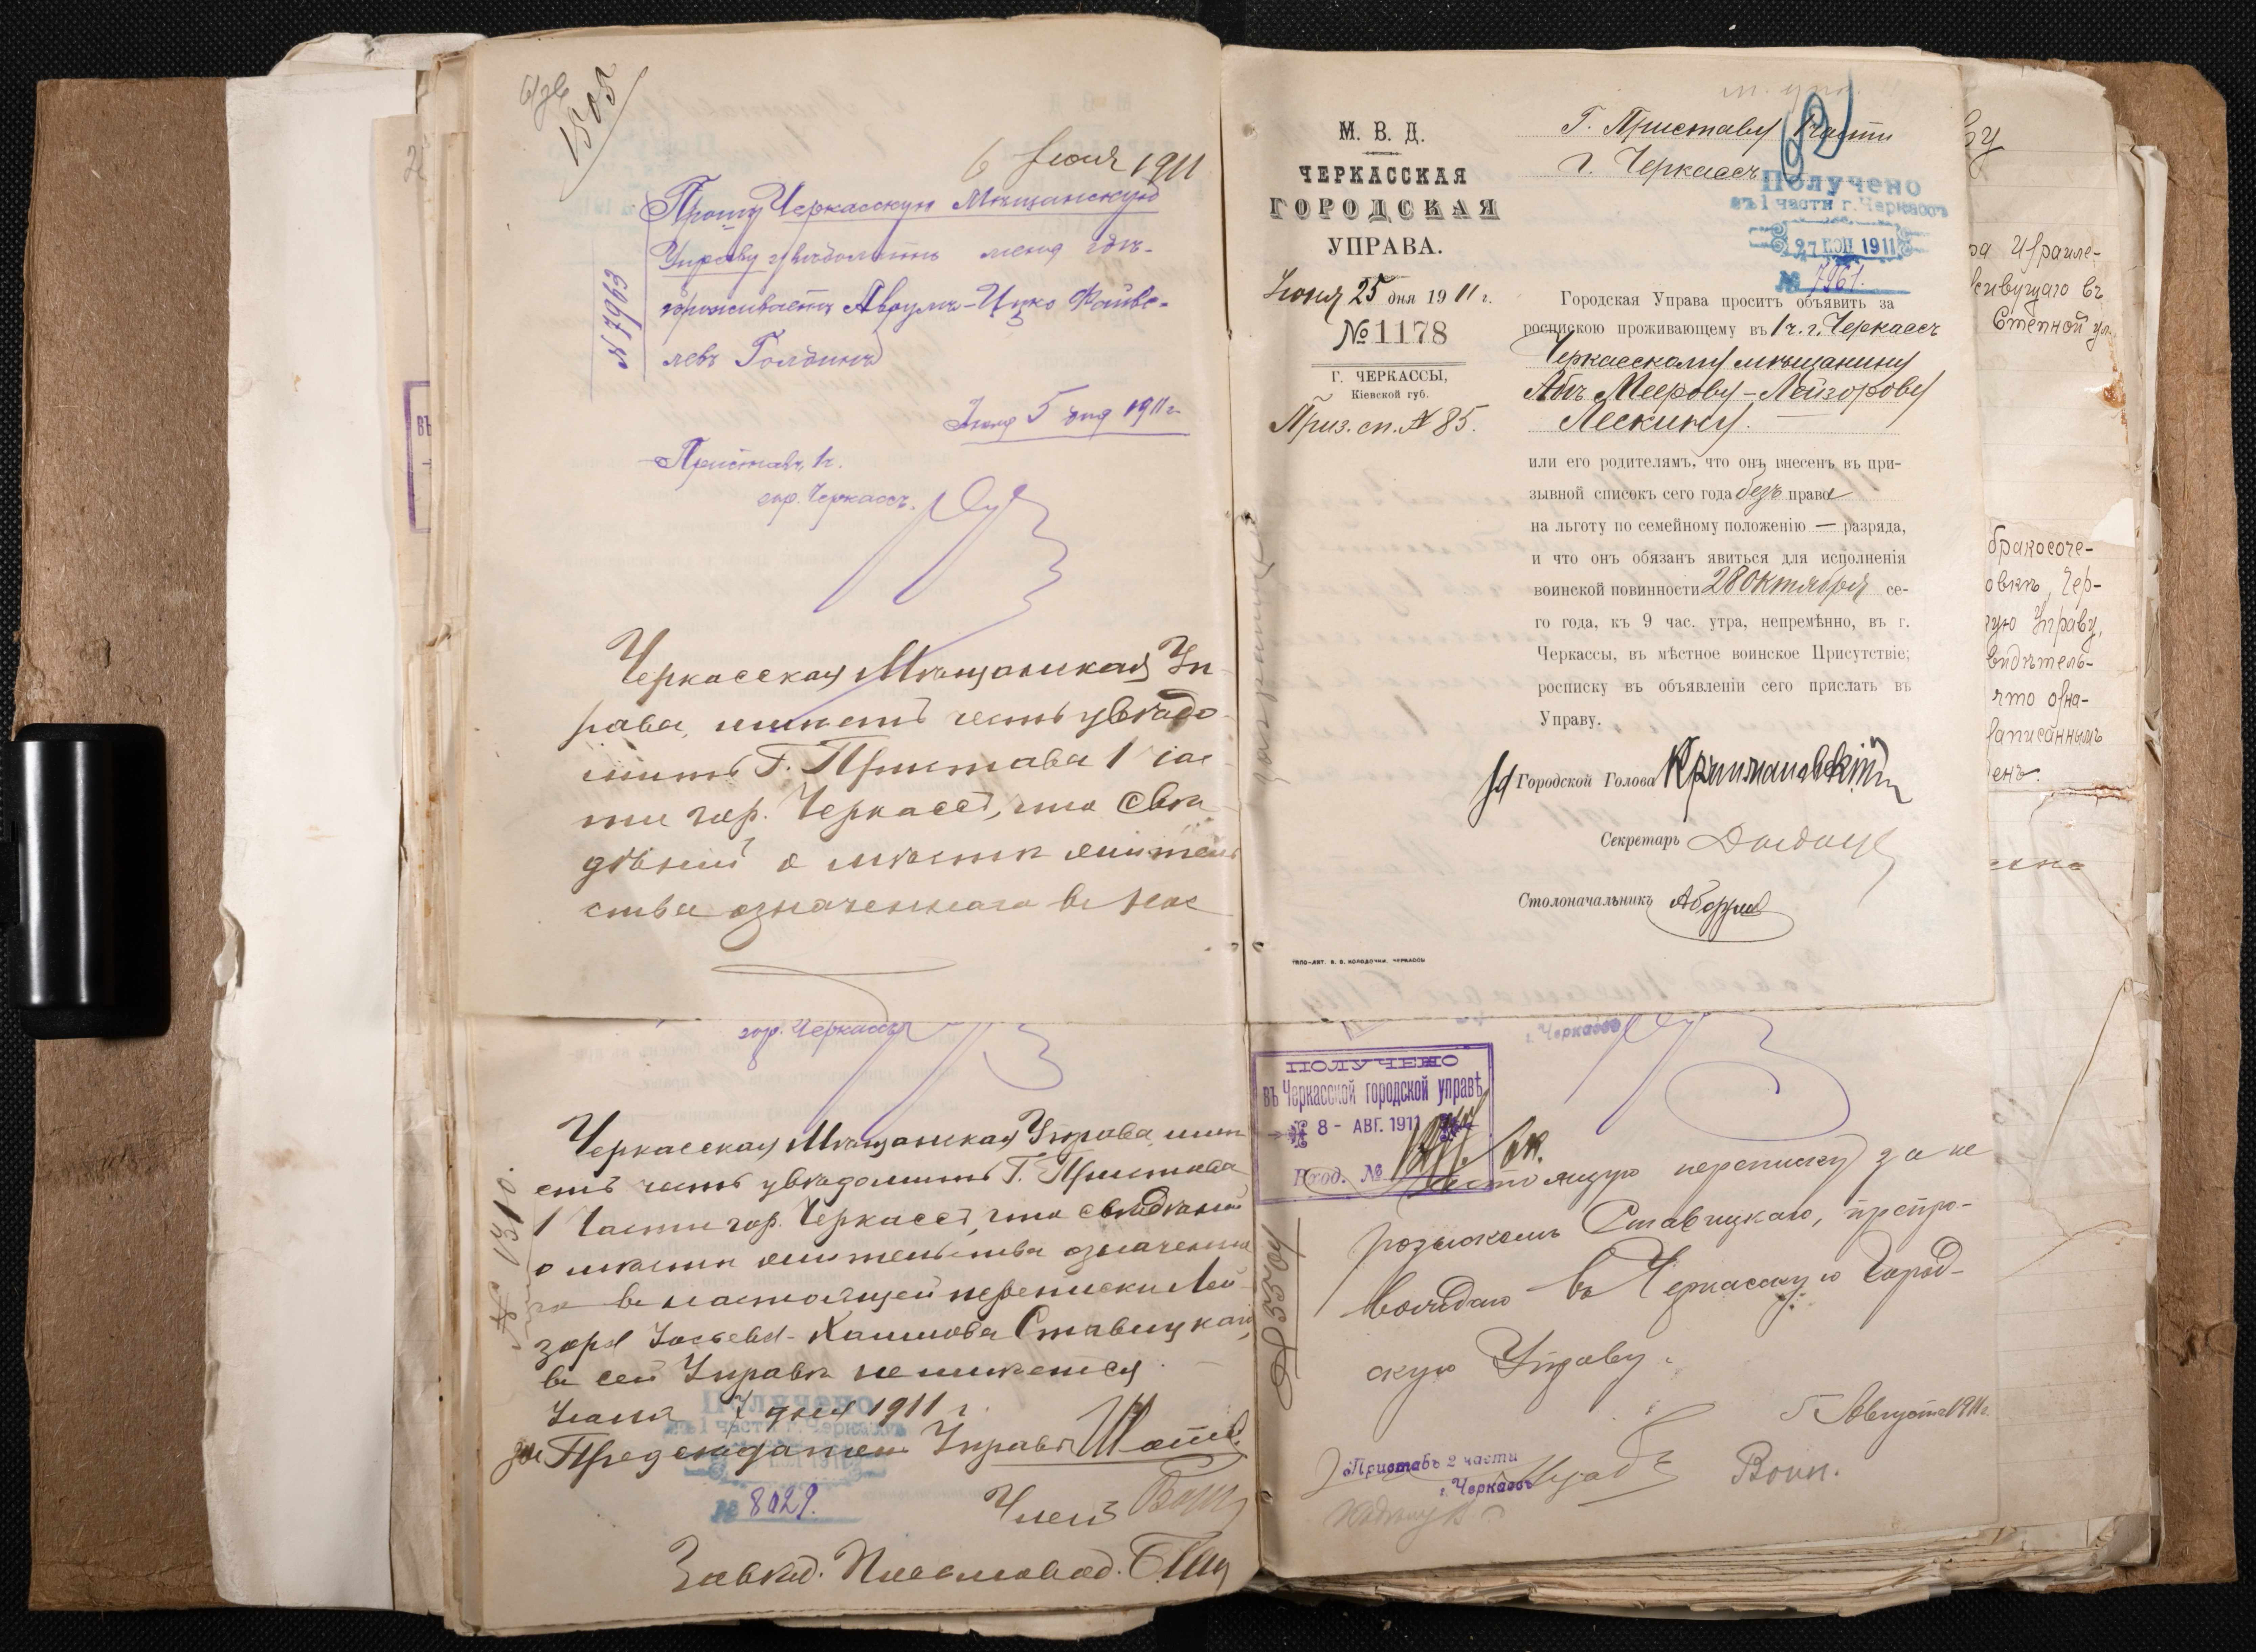 1505
6 Іюля 1911
Прошу Черкасскую Мѣщанскую
Управу увѣдомить меня гдѣ-
проживаетъ Аврумъ-Ицко Файве-
левъ Голдинъ
№ 7963
Іюля 5 дня 1911 г.
Приставъ 1 ч.
гор. Черкассъ.
Черкасская Мѣщанская Уп-
рава, имѣетъ честь увѣдо-
мить Г. Пристава 1 час
ти гор. Черкассъ, что свѣ
дѣній о мѣстѣ житель
ства означеннаго въ нас
гор. Черкассъ
Черкасская Мѣщанская Управа имѣ
етъ честь увѣдомить Г. Пристава
1 Части гор. Черкассъ, что свѣдѣній
о мѣстѣ жительства означенна
го въ настоящей перепискѣ Лей
зоря Іосьева-Хаимова Ставицкаго,
въ сей Управѣ не имѣется.
№ 1310.
Іюля 7 дня 1911 г.
за Предсѣдателя Управы
Получено
въ 1 части г. Черкассъ
№ 8029.
Членъ
Завѣд. Письмовод.
М. В. Д.
ЧЕРКАССКАЯ
ГОРОДСКАЯ
УПРАВА.
Іюня 25 дня 1911 г.
№ 1178
Г. ЧЕРКАССЫ,
Кіевской губ.
Приз. сп. № 85.
Г. Приставу 1 части
г. Черкассъ.
Получено
въ 1 части г. Черкассъ
27 ІЮН 1911
№ 7961.
Городская Управа проситъ объявить за
роспискою проживающему въ 1 ч. г. Черкассъ
Черкасскому мѣщанину
Абѣ Меерову-Лейзорову
Лескину.
или его родителямъ, что онъ внесенъ въ при-
зывной списокъ сего года безъ права
на льготу по семейному положенію — разряда,
и что онъ обязанъ явиться для исполненія
воинской повинности 28 Октября се-
го года, къ 9 час. утра, непремѣнно, въ г.
Черкассы, въ мѣстное воинское Присутствіе;
росписку въ объявленіи сего прислать въ
Управу.
Городской Голова
Секретарь
Столоначальникъ
ТИПО-ЛИТ. В. В. КОЛОДОЧКИ, ЧЕРКАССЫ
г. Черкассъ
ПОЛУЧЕНО
въ Черкасской городской управѣ
8 - АВГ. 1911
Вход. №
Настоящую переписку за не
розыскомъ Ставицкаго, препро-
вождаю въ Черкасскую Город-
скую Управу.
№ 5504
5 Августа 1911 г.
Приставъ 2 части
г. Черкассъ
ра Израиле-
живущаго въ
Степной ул.
бракосоче-
овкѣ, Чер-
ую Управу,
видѣтель-
что озна-
записаннымъ
енъ.